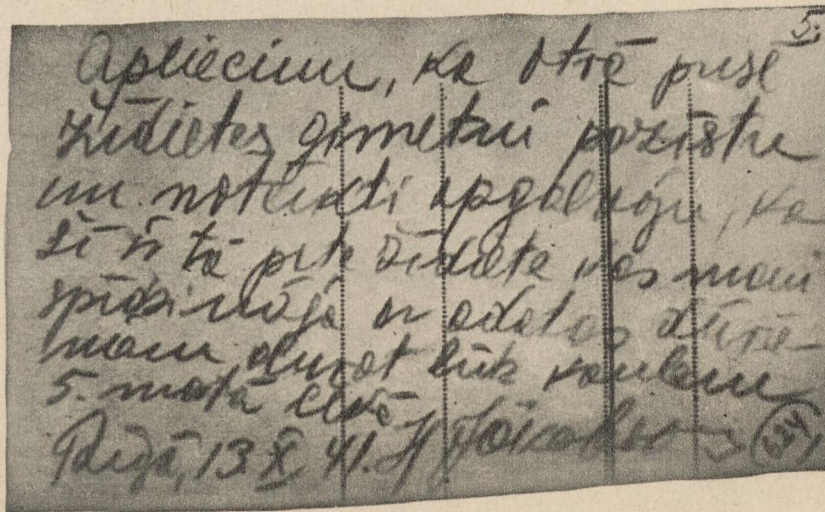 5.
Apliecinu, ka otrā pusē
židietes ģimetni pazīstu
un noteikti apgalvoju, ka
šī ir tā pate židiete kas mani
spīdzināja ar adatas dūrie-
mām durot līdz kaulam
5. martā
Rīgā, 13. X. 41.
624